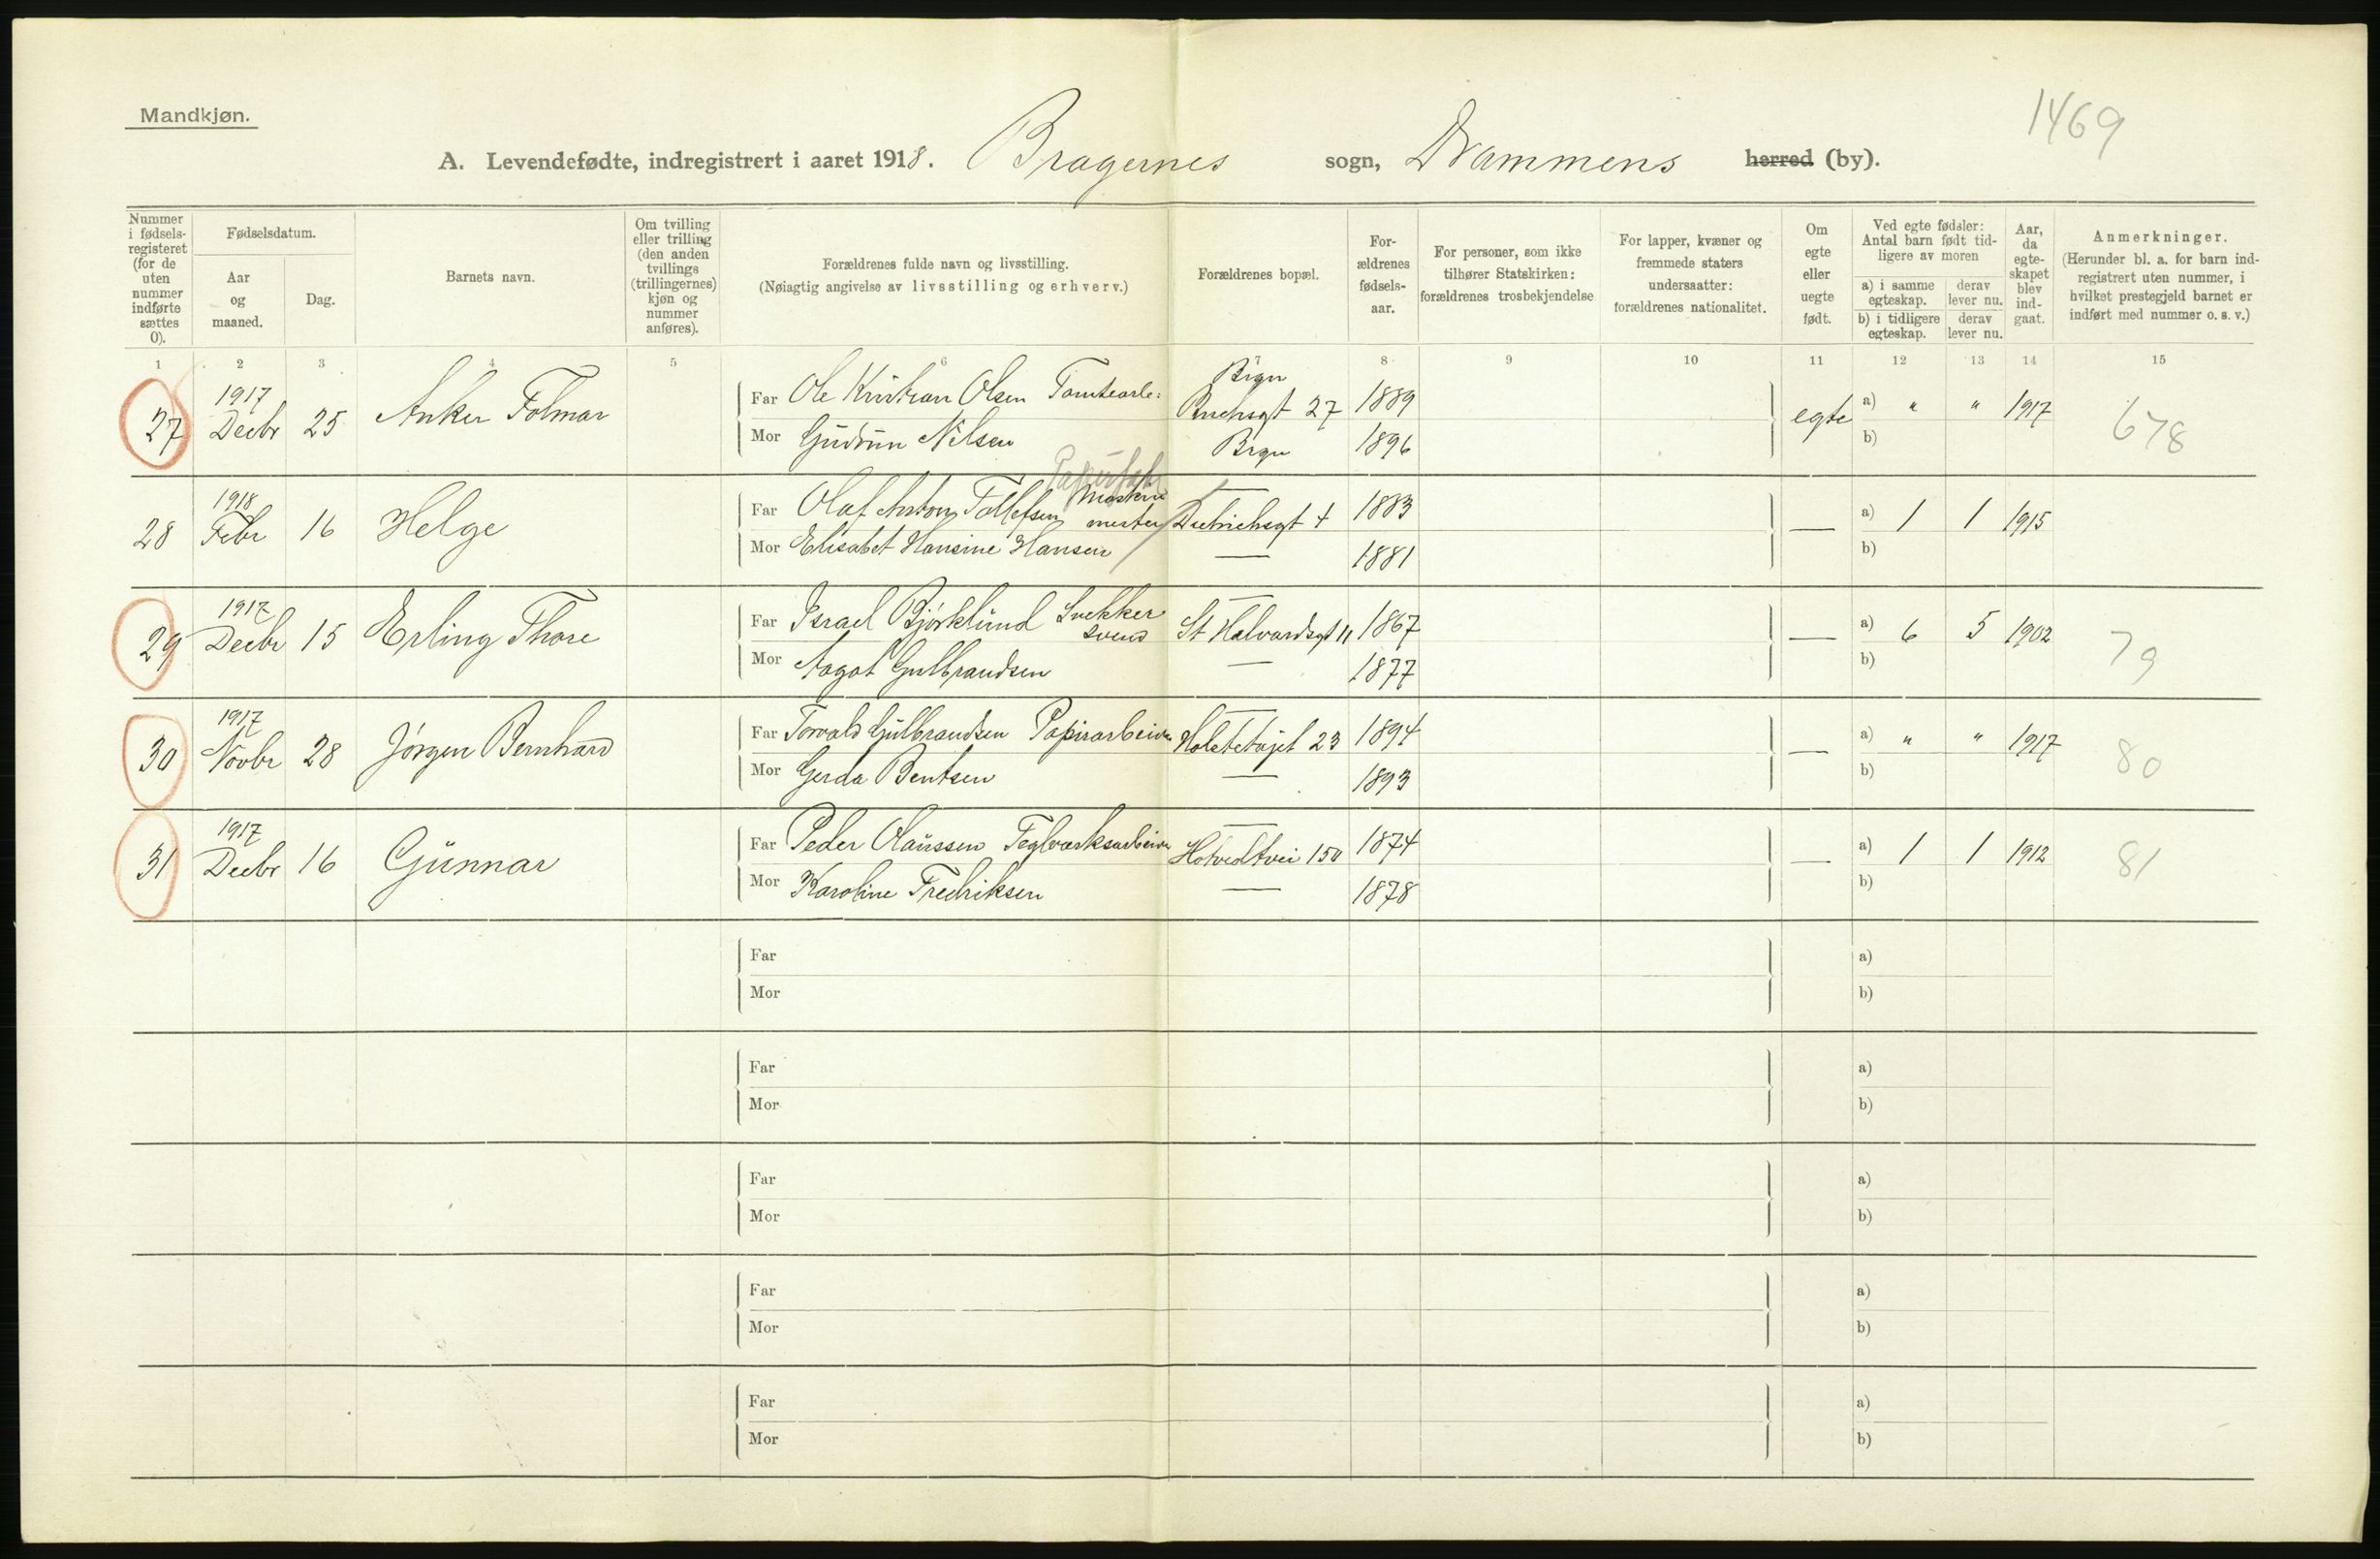 Mandkjøn.
1469
A. Levendefødte, indregistrert i aaret 1918. Bragernes sogn, Drammens herred (by).
Nummer i fødsels- registeret (for de uten nummer indførte sættes 0).
Fødselsdatum.
Aar og maaned.
Dag.
Barnets navn.
Om tvilling eller trilling (den anden tvillings (trillingernes) kjøn og nummer anføres).
Forældrenes fulde navn og livsstilling.
(Nøiagtig angivelse av livsstilling og erhverv.)
Forældrenes bopæl.
For- ældrenes fødsels- aar.
For personer, som ikke tilhører Statskirken: forældrenes trosbekjendelse
For lapper, kvæner og fremmede staters undersaatter: forældrenes nationalitet.
Om egte eller uegte født.
Ved egte fødsler: Antal barn født tid- ligere av moren
a) i samme egteskap.
derav lever nu.
b) i tidligere egteskap.
derav lever nu.
Aar, da egte- skapet blev ind- gaat.
Anmerkninger.
(Herunder bl. a. for barn ind- registrert uten nummer, i hvilket prestegjeld barnet er indført med nummer o. s. v.)
1 2 3 4 5 6 7 8 9 10 11 12 13 14 15
27 1917 Decbr 25 Anker Folmar
Far Ole Kristian Olsen Tomtearb: Brgn 27 1889
Mor Gudrun Nilsen Brgn 1896
egte a) " " 1917 678
b)
28 1918 Febr 16 Helge
Far Olaf Anton Tollefsen Maskin mester Dietrichsgt 4 1883
Mor Elisabet Hansine Hansen — 1881
— a) 1 1 1915
b)
29 1917 Decbr 15 Erling Thore
Far Israel Bjørklund Snekker svend St Halvardsgt 11 1867
Mor Aagot Gulbrandsen — 1877
— a) 6 5 1902 79
b)
30 1917 Novbr 28 Jørgen Bernhard
Far Torvald Gulbrandsen Papirarbeider 23 1894
Mor Gerda Bentsen — 1893
— a) " " 1917 80
b)
31 1917 Decbr 16 Gunnar
Far Peder Olaussen Teglverksarbeider Hotvedtvei 150 1874
Mor Karoline Fredriksen — 1878
— a) 1 1 1912 81
b)
Far a)
Mor b)
Far a)
Mor b)
Far a)
Mor b)
Far a)
Mor b)
Far a)
Mor b)